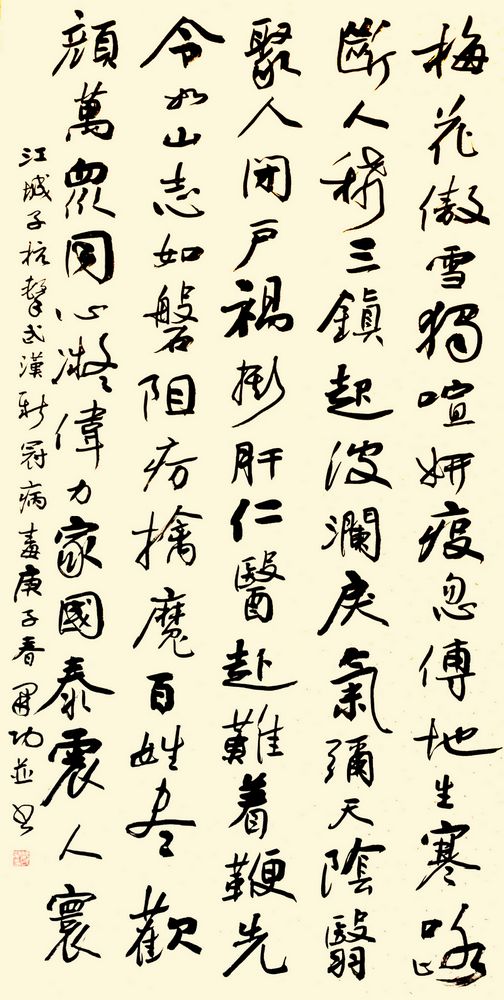 梅花傲雪獨喧妍疫忽傳地生寒路
斷人稀三鎮起波瀾戾氣彌天陰翳
聚人閉戶禍肝仁醫赴難着鞭先
令如山志如磐阻疠擒魔百姓盡歡
顔萬眾同心凝偉力家國泰震人寰
江城子抗擊武漢新冠病毒庚子春功並書